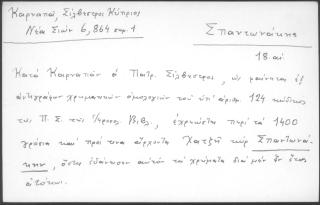 Καρναπᾶ, Σίλβεστρος Κύπριος
Νέα Σιών 6, 864 σημ. 1
Σπαντωνάκης
18 αἰ
Κατὰ Καρναπᾶν ὁ Πατρ. Σίλβεστρος, ὡς φαίνεται ἐξ
ἀντιγράφου χρηματικῶν ὁμολογιῶν τοῦ ὑπ' ἀριθμ. 124 κώδικος
τῆς Π. Σ. τῆς Ἱεροσ. Βιβλ., ἐχρεώστει περὶ τὰ 1400
γρόσια καὶ πρός τινα ἄρχοντα Χατζῆ κὺρ Σπαντωνά-
κην, ὅστις ἐδάνεισεν αὐτὸν τὰ χρήματα διὰ μόν ἓν ἔτος
ἀτόκως.